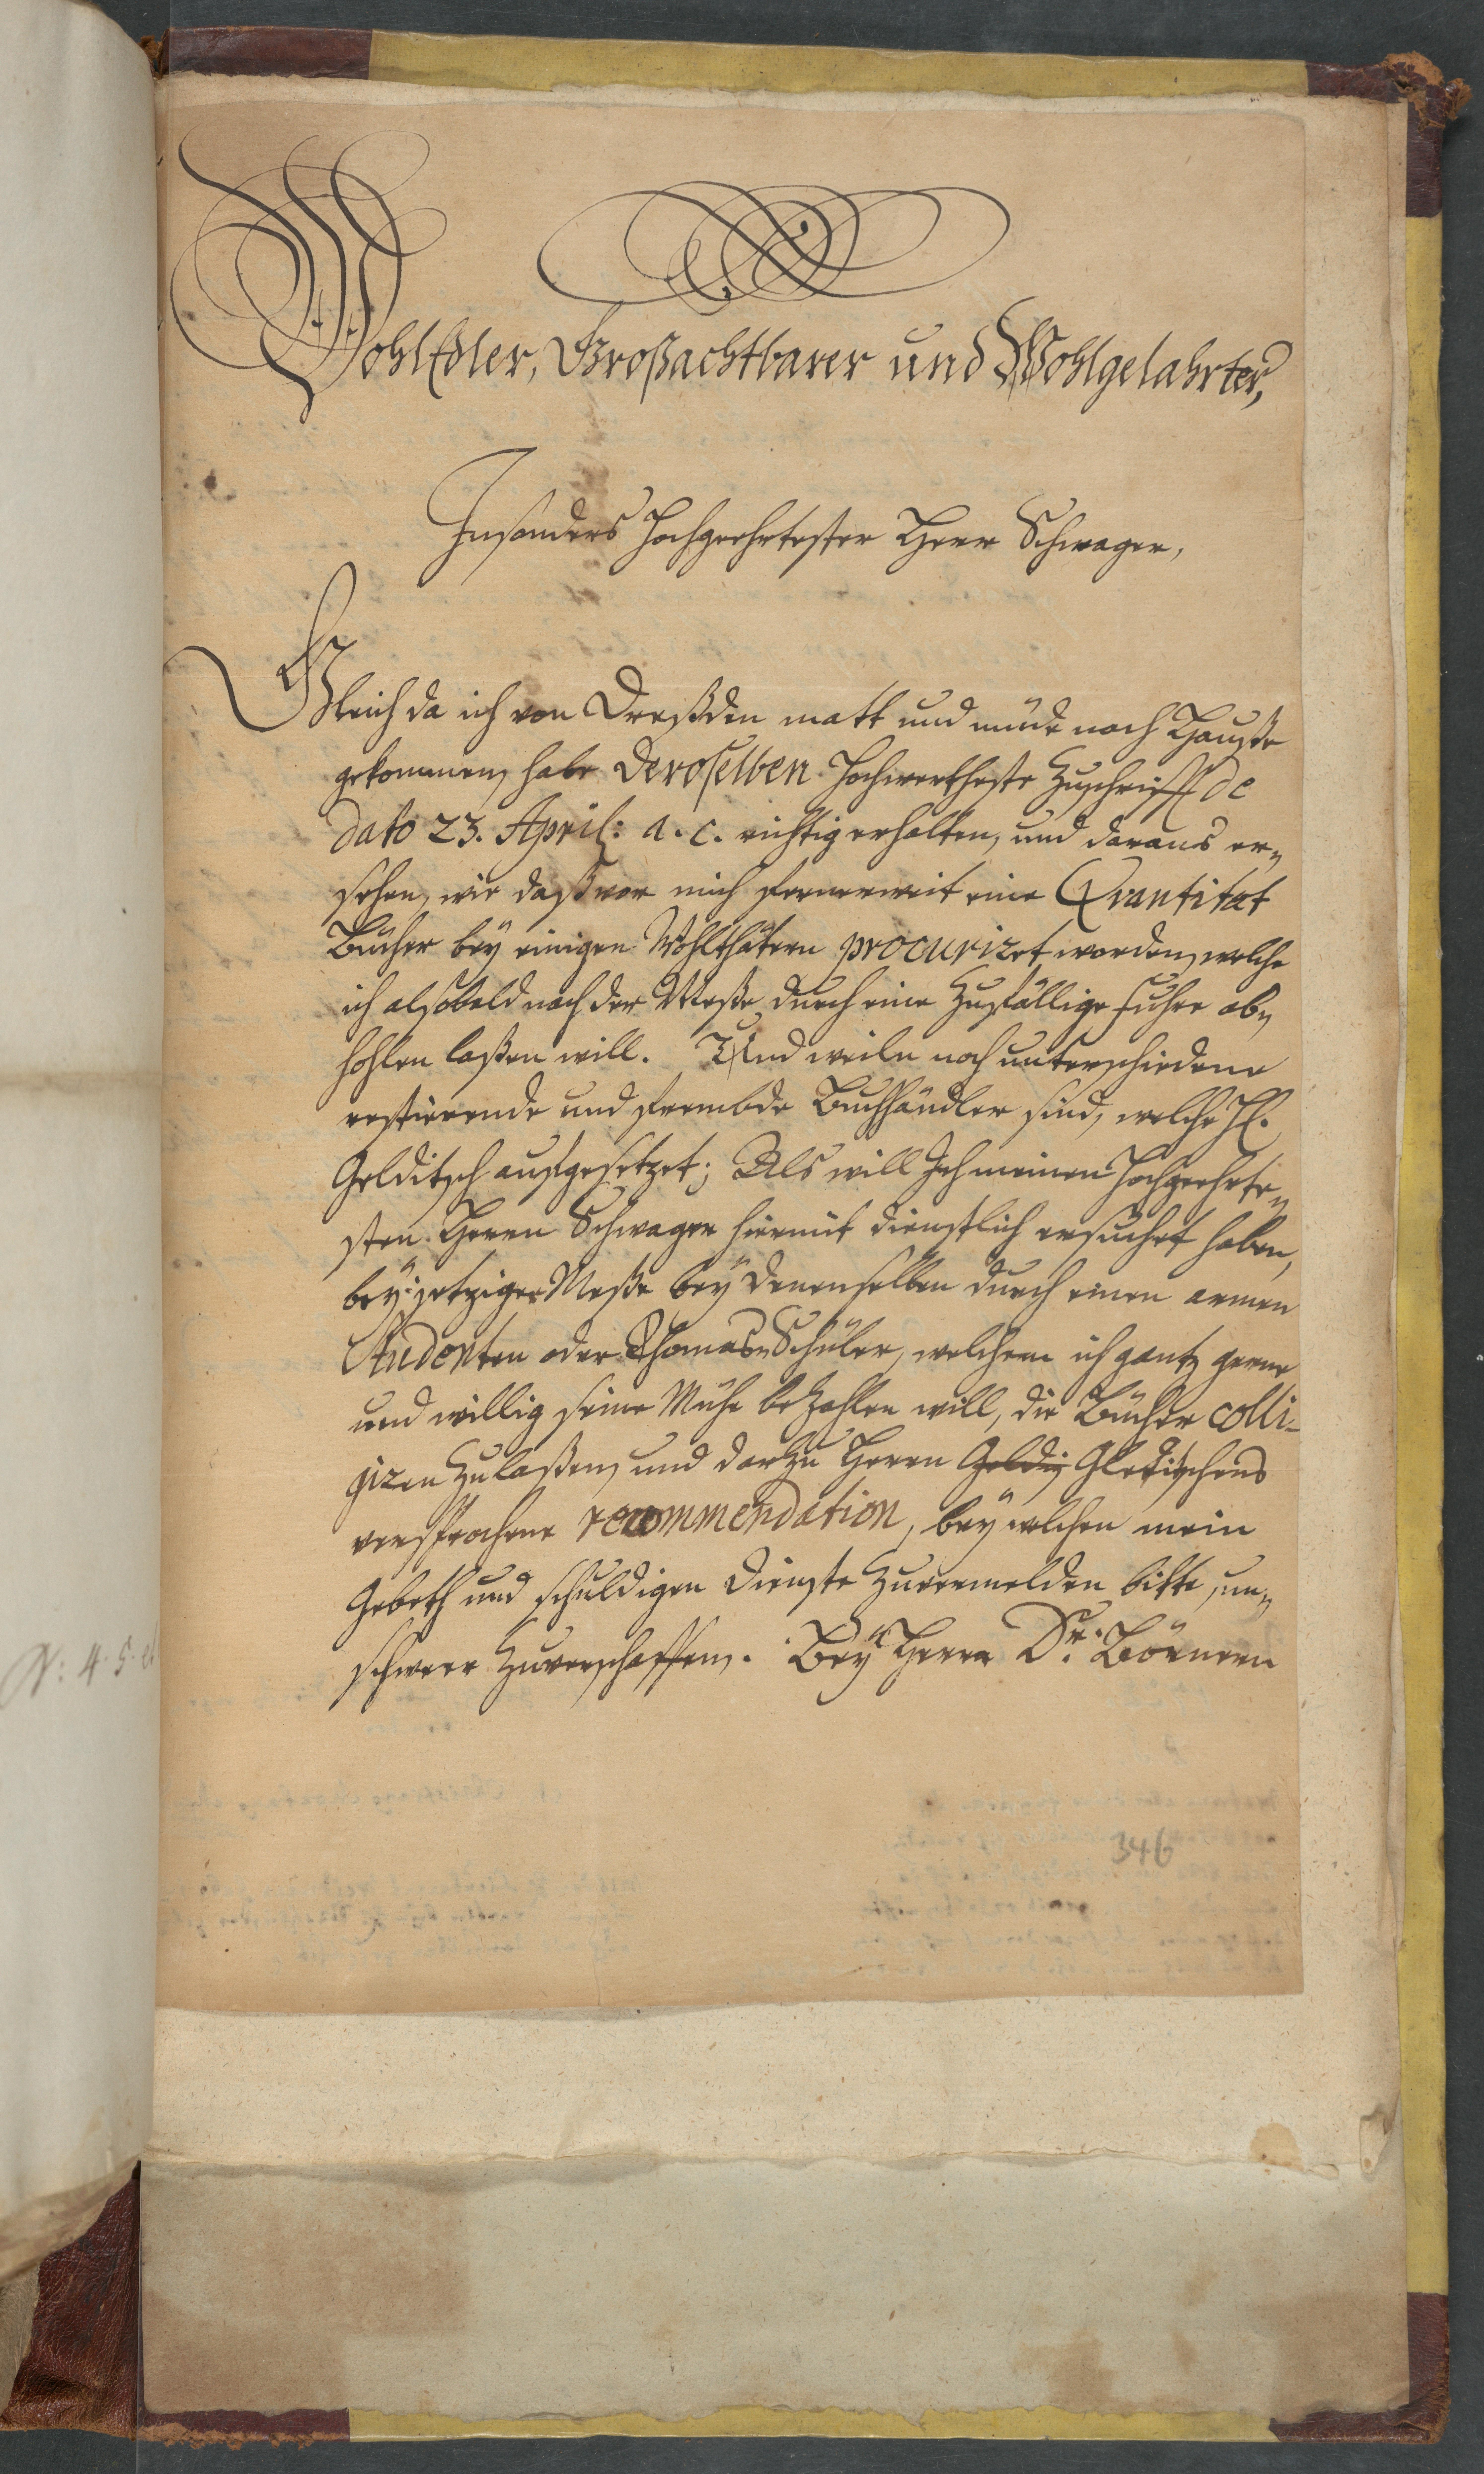 WohlEdler, Großachtbarer und Wohlgelahrter,
Insonders Hochgeehrtester Herr Schwager,
Gleich da ich von Dreßden matt und müde nach Hauße
gekommen, habe Deroselben Hochwertheste Zuschrifft de
dato 23. April: a. c. richtig erhalten, und daraus er-
sehen, wie daß vor mich fernerweit eine Qvantitæt
Bücher bey einigen Wohlthätern procuriret worden, welche
ich alsobald nach der Meße durch eine Zufällige Fuhre ab-
hohlen laßen will. Und weiln noch unterschiedene
restierende und frembde Buchhändler sind, welche H.
Golditsch aufgesetzet; Als will Ich meinen Hochgeehrte-
sten Herrn Schwager hiermit dienstlich ersuchet haben,
bey jetziger Meße bey denenselben durch einen armen
Studenten oder Thomas-Schüler, welchem ich gantz gerne
und willig seine Mühe bezahlen will, die Bücher colli-
giren zulaßen, und darzu Herrn Goldiz Gleditschens
versprochene recommendation, bey welchen mein
Gebeth und schuldigen Dienste zuvermelden bitte, un-
schwer zuverschaffen. Bey Herrn Dr. Börnern
346
N: 4. 5.